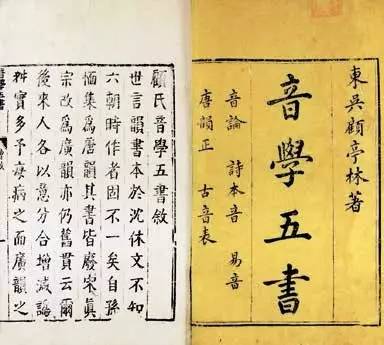 東吳顧亭林著
音學五書
音論 詩本音 易音
唐韻正 古音表
顧氏音學五書敘
世言韻書本於沈休文不知
六朝時作者固不一矣自孫
愐集為唐韻其書皆廢宋真
宗改為廣韻亦仍舊貫云爾
後來人各以意分合增減譌
舛實多予病之而廣韻之